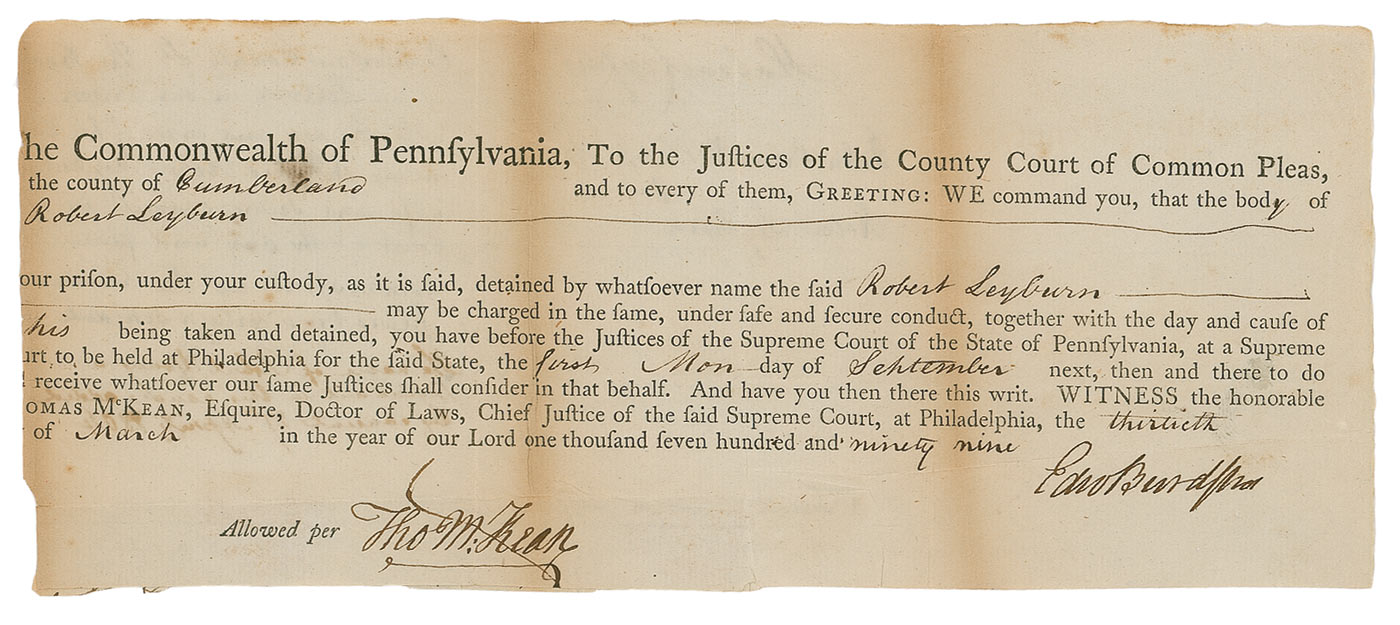 he Commonwealth of Pennſylvania, To the Juſtices of the County Court of Common Pleas,
the county of Cumberland and to every of them, GREETING: WE command you, that the body of
Robert Leyburn
our priſon, under your cuſtody, as it is ſaid, detained by whatſoever name the ſaid Robert Leyburn
may be charged in the ſame, under ſafe and ſecure conduct, together with the day and cauſe of
his being taken and detained, you have before the Juſtices of the Supreme Court of the State of Pennſylvania, at a Supreme
urt to be held at Philadelphia for the ſaid State, the first Mon day of September next, then and there to do
receive whatſoever our ſame Juſtices ſhall conſider in that behalf. And have you then there this writ. WITNESS the honorable
OMAS McKEAN, Eſquire, Doctor of Laws, Chief Juſtice of the ſaid Supreme Court, at Philadelphia, the thirtieth
of March in the year of our Lord one thouſand ſeven hundred and ninety nine
Edw Burd
Allowed per Tho M:Kean